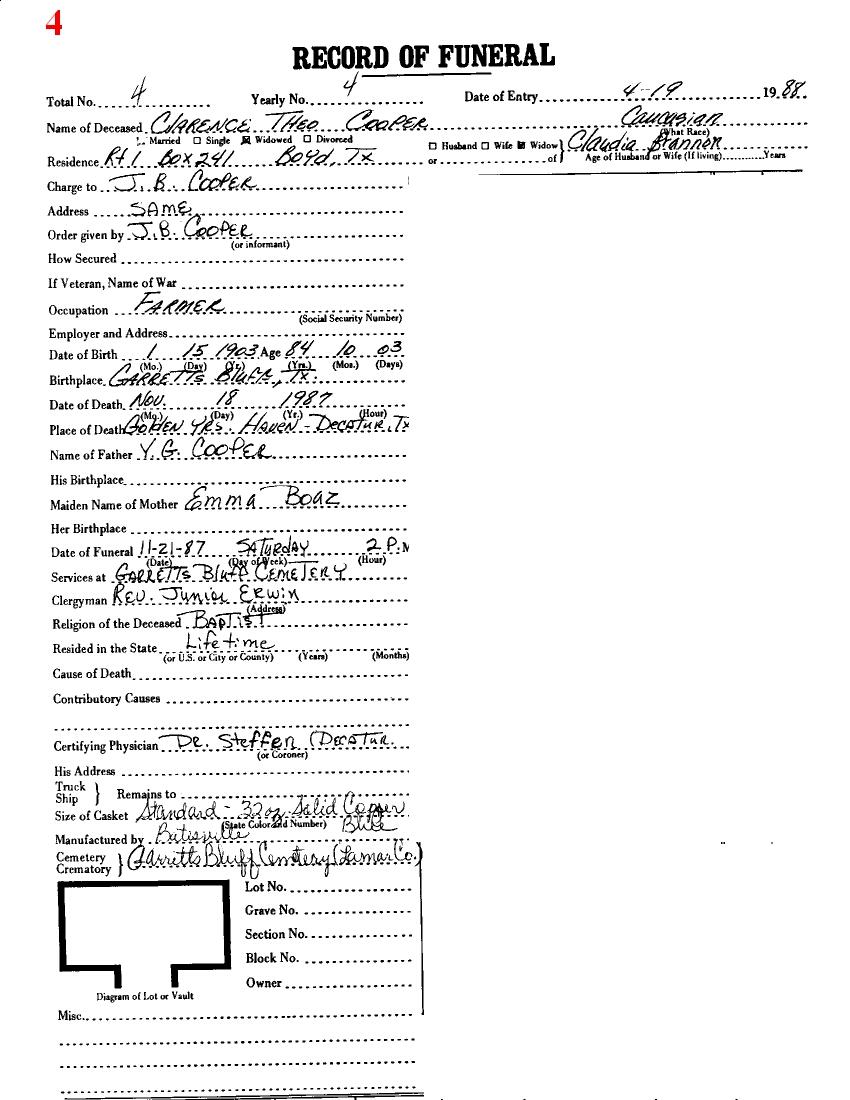 4
RECORD OF FUNERAL
Total No. 4 Yearly No. 4 Date of Entry 4-19 1988
Name of Deceased CLARENCE THEO COOPER Caucasian
Married Single Widowed Divorced (What Race)
Husband Wife Widow Claudia Brannon
Residence Rt 1 BOX 241 Boyd, Tx or of Age of Husband or Wife (If living) Years
Charge to J. B. COOPER
Address SAME
Order given by J. B. COOPER
(or informant)
How Secured
If Veteran, Name of War
Occupation FARMER
(Social Security Number)
Employer and Address
Date of Birth 1 15 1903 Age 84 10 03
(Mo.) (Day) (Yr.) (Yrs.) (Mos.) (Days)
Birthplace GARRETTS BLUFF, TX.
Date of Death NOV. 18 1987
(Mo.) (Day) (Yr.) (Hour)
Place of Death GOLDEN YRS. HAVEN - DECATUR, Tx
Name of Father Y. G. COOPER
His Birthplace
Maiden Name of Mother Emma Boaz
Her Birthplace
Date of Funeral 11-21-87 SATURDAY 2 P.M
(Date) (Day of Week) (Hour)
Services at GARRETTS BLUFF CEMETERY
Clergyman REV. JUNIOR ERWIN
(Address)
Religion of the Deceased BAPTIST
Resided in the State Life time
(or U.S. or City or County) (Years) (Months)
Cause of Death
Contributory Causes
Certifying Physician DR. Steffen (DECATUR.
(or Coroner)
His Address
Truck
Ship } Remains to
Size of Casket Standard - 32 oz Solid Copper
(State Color and Number) Blue
Manufactured by Batisville
Cemetery
Crematory } Garretts Bluff Cemetery (Lamar Co.)
Lot No.
Grave No.
Section No.
Block No.
Owner
Diagram of Lot or Vault
Misc.